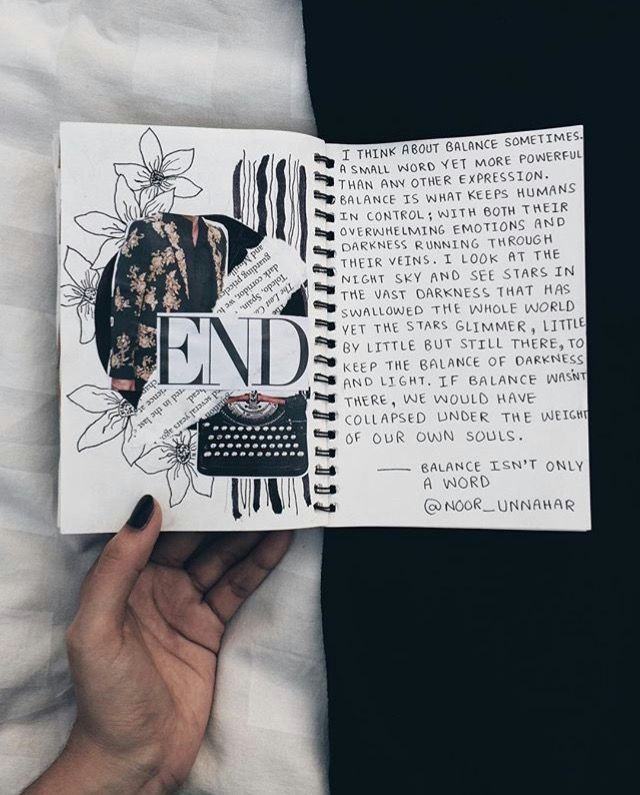 The Last C
Toledo, Spain
dark corridor, we
guarding priceless
and Me
END
several years ago,
red in the last
read
I THINK ABOUT BALANCE SOMETIMES.
A SMALL WORD YET MORE POWERFUL
THAN ANY OTHER EXPRESSION.
BALANCE IS WHAT KEEPS HUMANS
IN CONTROL; WITH BOTH THEIR
OVERWHELMING EMOTIONS AND
DARKNESS RUNNING THROUGH
THEIR VEINS. I LOOK AT THE
NIGHT SKY AND SEE STARS IN
THE VAST DARKNESS THAT HAS
SWALLOWED THE WHOLE WORLD
YET THE STARS GLIMMER, LITTLE
BY LITTLE BUT STILL THERE, TO
KEEP THE BALANCE OF DARKNESS
AND LIGHT. IF BALANCE WASN'T
THERE, WE WOULD HAVE
COLLAPSED UNDER THE WEIGHT
OF OUR OWN SOULS.
— BALANCE ISN'T ONLY
A WORD
@NOOR_UNNAHAR